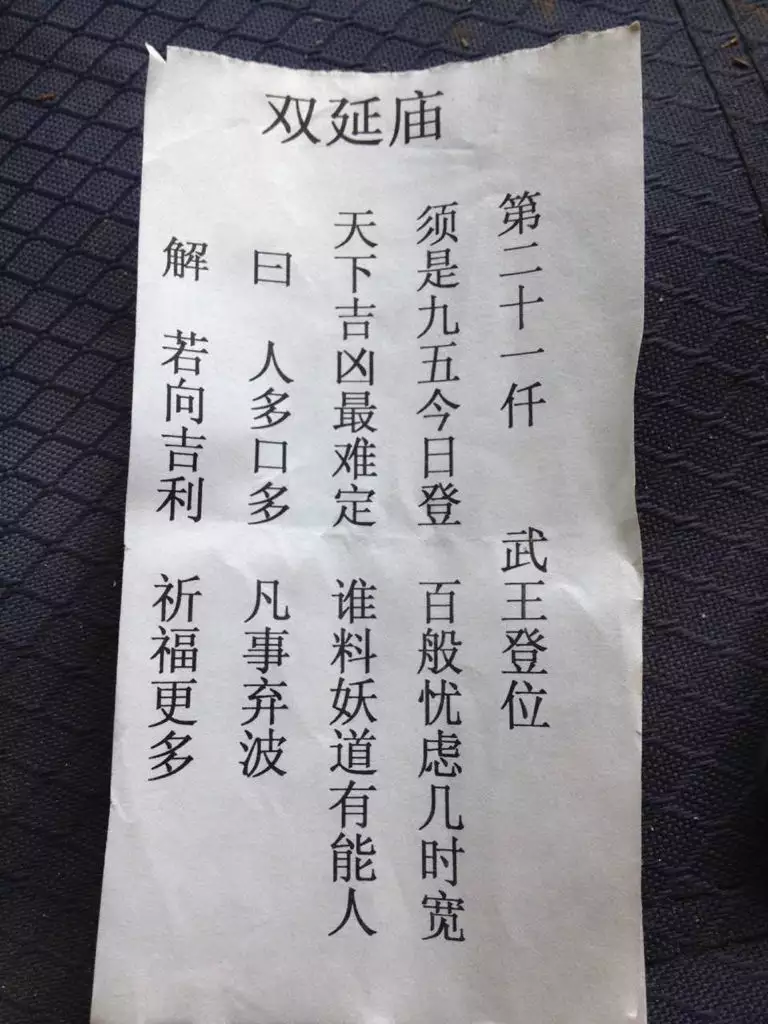 双延庙
第二十一仟 武王登位
须是九五今日登 百般忧虑几时宽
天下吉凶最难定 谁料妖道有能人
曰 人多口多 凡事弃波
解 若向吉利 祈福更多